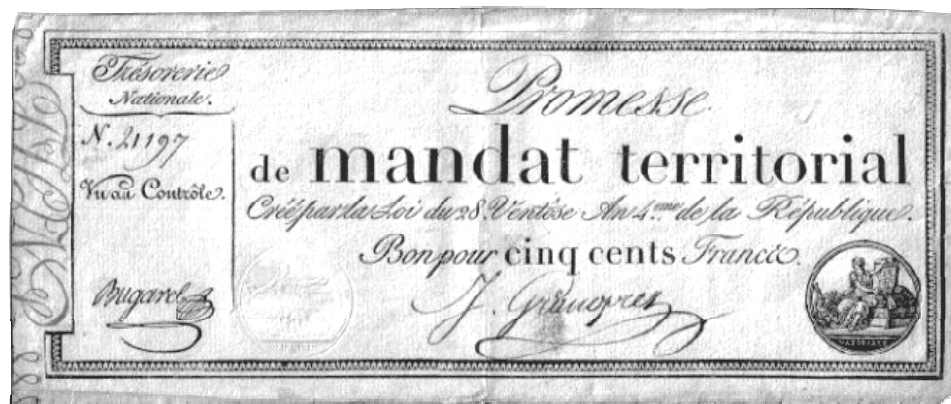 Trésorerie
Nationale.
N. 21197
Vu au Contrôle.
Bugarel
Promesse
de mandat territorial
Créé par la Loi du 28. Ventôse An 4.ème de la République.
Bon pour cinq cents Francs.